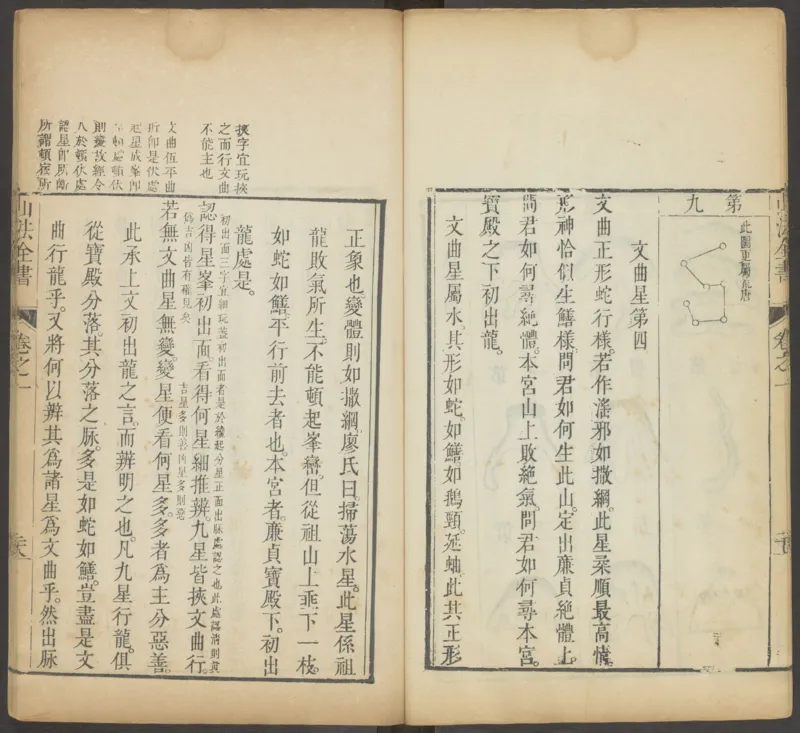 山法全書
卷之一
第九
此圖更屬
文曲星第四
文曲正形蛇行樣。若作滛邪如撒網。此星柔順最高情。
形神恰似生鱔樣。問君如何生此山。定出廉貞絶體上。
問君如何尋絶體。本宮山上敗絶氣。問君如何尋本宮。
寶殿之下初出龍。
文曲星屬水。其形如蛇。如鱔如鵝頸。延蚰。此其正形
挾字宜玩挾
之而行文曲
不能主也
文曲伍平曲
所卸是伏處
起星成峯卸
頓處頓伏
則變故經令
人於頓伏處
認星卸
所謂頓
正象也。變體則如撒網。廖氏曰。掃蕩水星。此星係祖
龍敗氣所生。不能頓起峯巒。但從祖山上乖下一枝。
如蛇如鱔。平行前去者也。本宮者。廉貞寶殿下。初出
龍處是。
初出面三字宜細玩蓋初出面者是於纔起分星正面出脉處認之也此處認淸則眞
認得星峯初出面。看得何星細推辨。九星皆挾文曲行。
僞吉凶皆有確見矣
若無文曲星無變。變星便看何星多。多者爲主分惡善。
吉星多則善凶星多則惡
此承上文初出龍之言。而辨明之也。凡九星行龍。俱
從寶殿分落。其分落之脉。多是如蛇如鱔。豈盡是文
曲行龍乎。又將何以辨其爲諸星爲文曲乎。然出脉
山法全書
卷之一